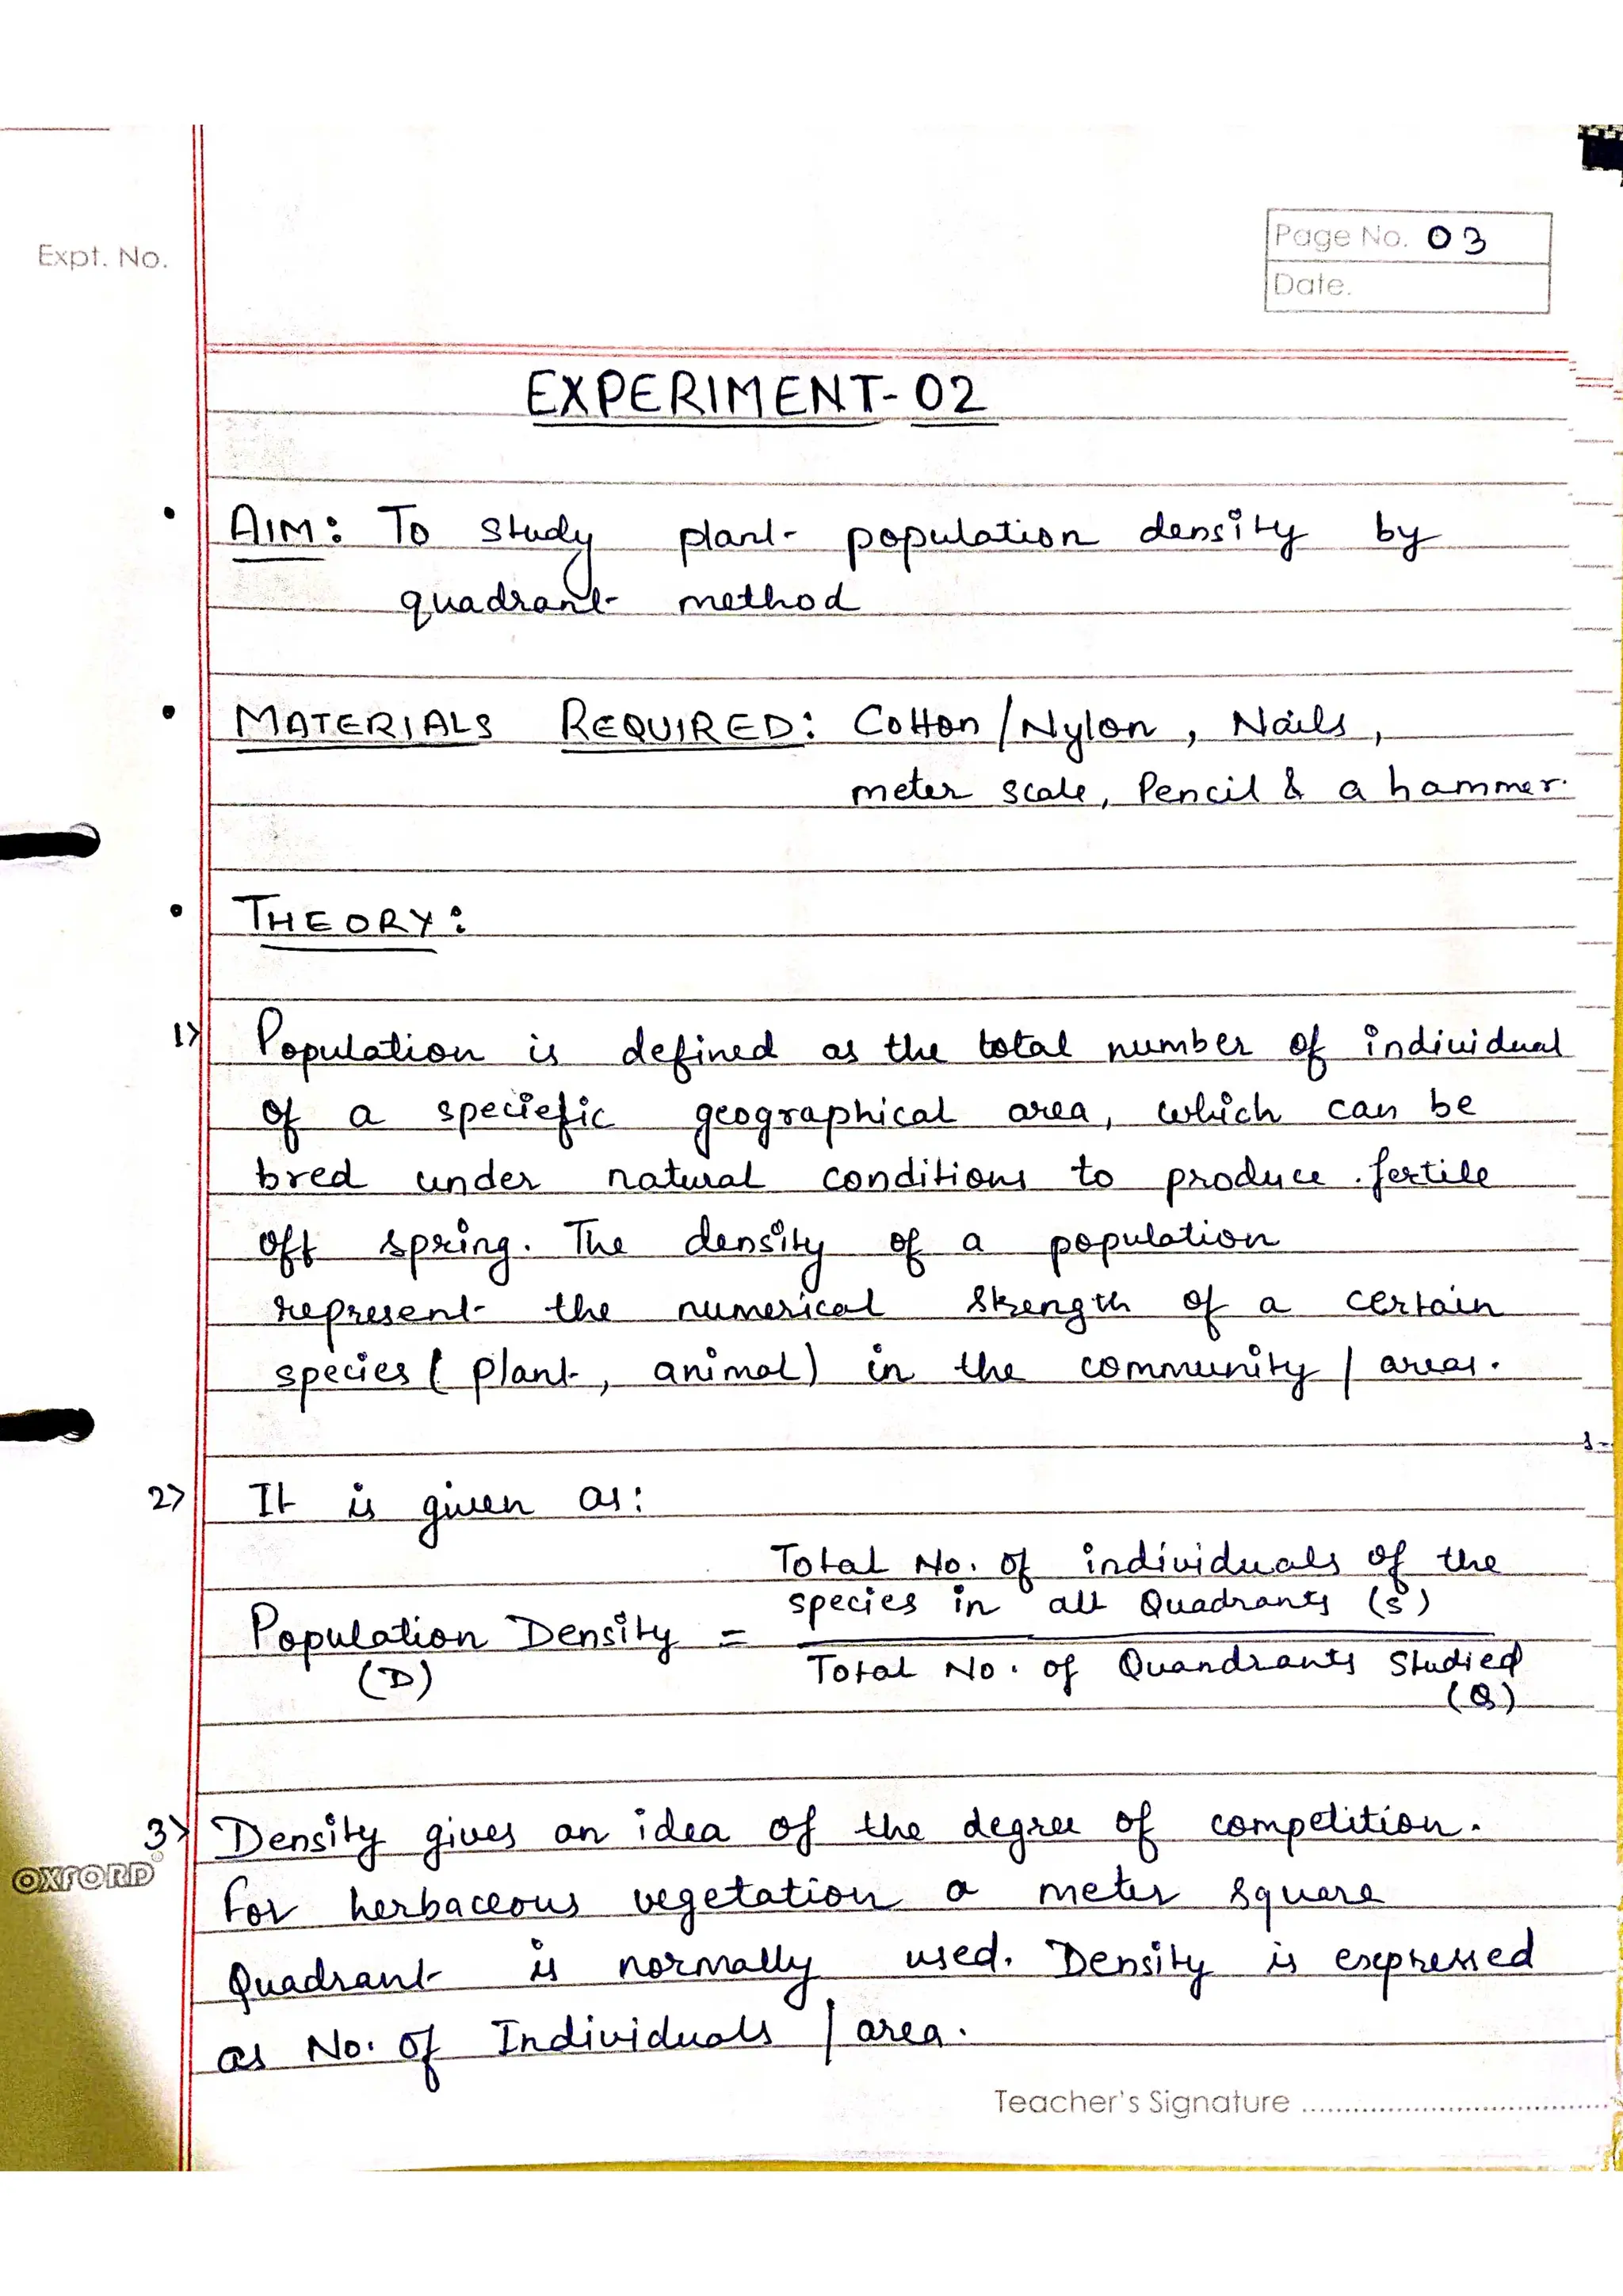 Expt. No.
Page No. 03
Date.
EXPERIMENT-02
• AIM: To study plant population density by
quadrant method
• MATERIALS REQUIRED: Cotton/Nylon, Nails,
meter scale, Pencil & a hammer.
• THEORY:
1> Population is defined as the total number of individual
of a speciefic geographical area, which can be
bred under natural conditions to produce fertile
off spring. The density of a population
represent the numerical strength of a certain
species (plant, animal) in the community / areas.
2> It is given as:
Total No. of individuals of the
species in all Quadrants (S)
Population Density =
Total No. of Quandrants Studied
(D)
(Q)
3> Density gives an idea of the degree of competition.
For herbaceous vegetation a meter square
Quadrant is normally used. Density is expressed
as No. of Individuals / area.
OXFORD
Teacher's Signature